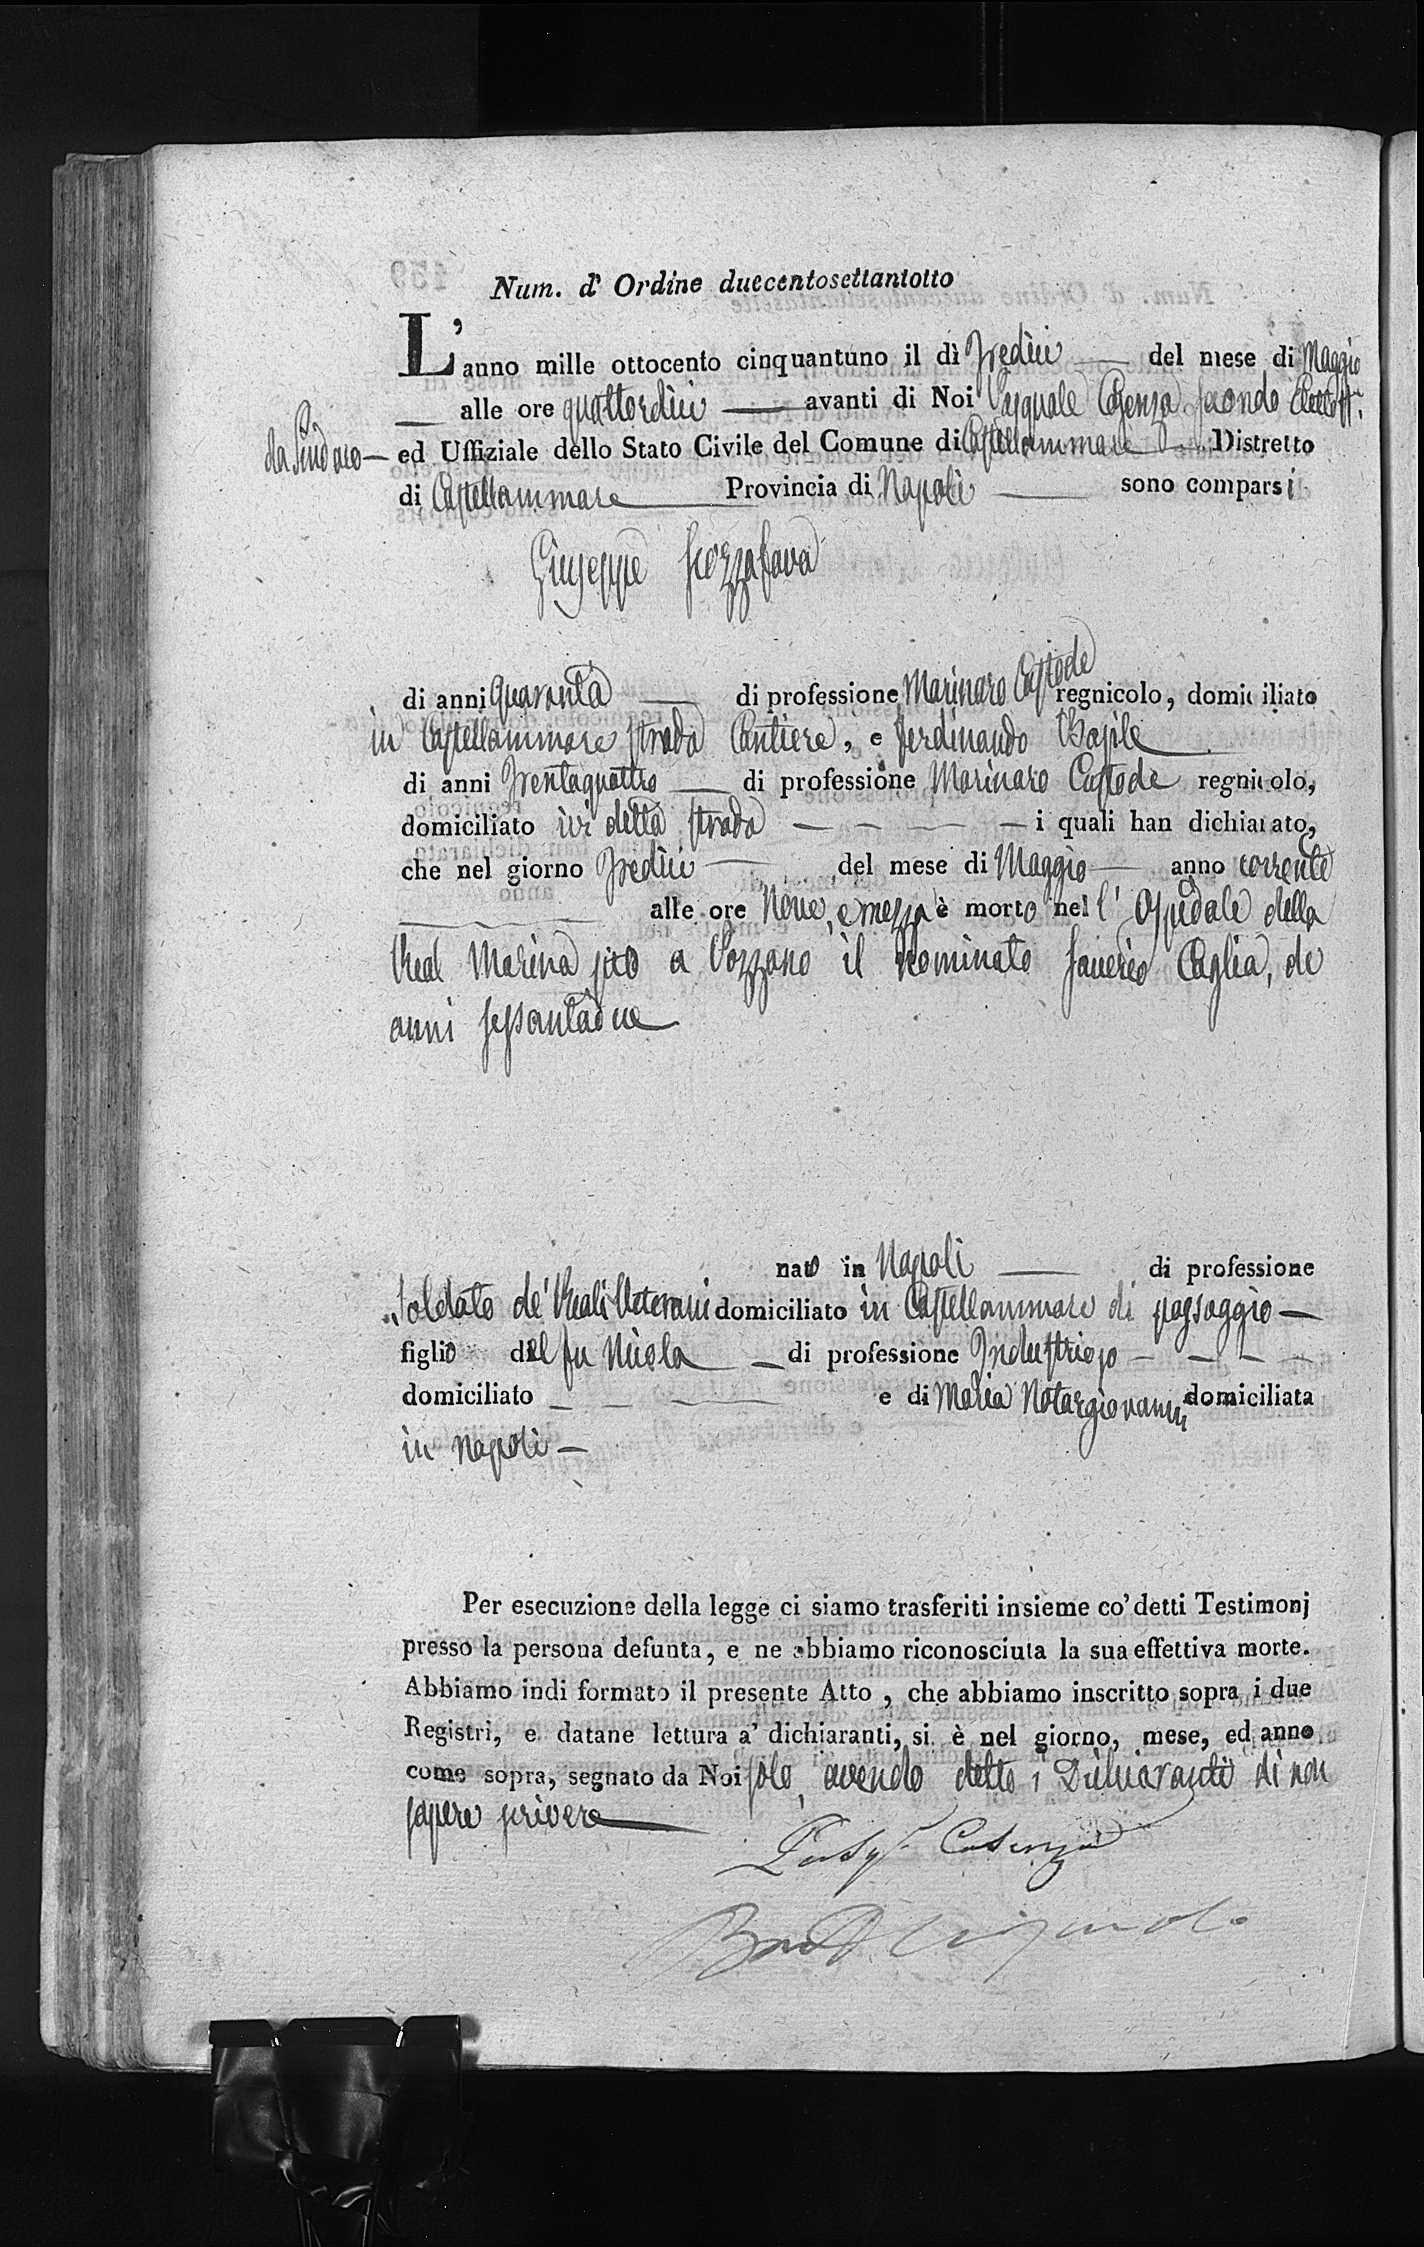 Num. d' Ordine duecentosettantotto
L'anno mille ottocento cinquantuno il dì Tredici — del mese di Maggio
— alle ore quattordici — avanti di Noi Pasquale Cosenza secondo Eletto ff.
da Sindaco — ed Uffiziale dello Stato Civile del Comune di Castellammare — Distretto
di Castellammare — Provincia di Napoli — sono comparsi
Giuseppe Scozzafava
di anni quaranta — di professione Marinaro Custode regnicolo, domiciliato
in Castellammare strada Cantiere, e Ferdinando Basile —
di anni Trentaquattro — di professione Marinaro Custode regnicolo,
domiciliato ivi detta strada — — — — i quali han dichiarato,
che nel giorno Tredici — del mese di Maggio — anno corrente
— alle ore Nove, e mezza è morto nell' Ospedale della
Real Marina sito a Pozzano il Nominato Saverio Caglia, de
anni sessantadue
nato in Napoli — di professione
Soldato de' Reali Veterani domiciliato in Castellammare di passaggio —
figlio del fu Nicola — di professione Industrioso — — — —
domiciliato — — — — e di Maria Notargiovanni domiciliata
in Napoli —
Per esecuzione della legge ci siamo trasferiti insieme co' detti Testimonj
presso la persona defunta, e ne abbiamo riconosciuta la sua effettiva morte.
Abbiamo indi formato il presente Atto, che abbiamo inscritto sopra i due
Registri, e datane lettura a' dichiaranti, si è nel giorno, mese, ed anno
come sopra, segnato da Noi solo, avendo detto i Dichiaranti di non
sapere scrivere
Pasq. Cosenza